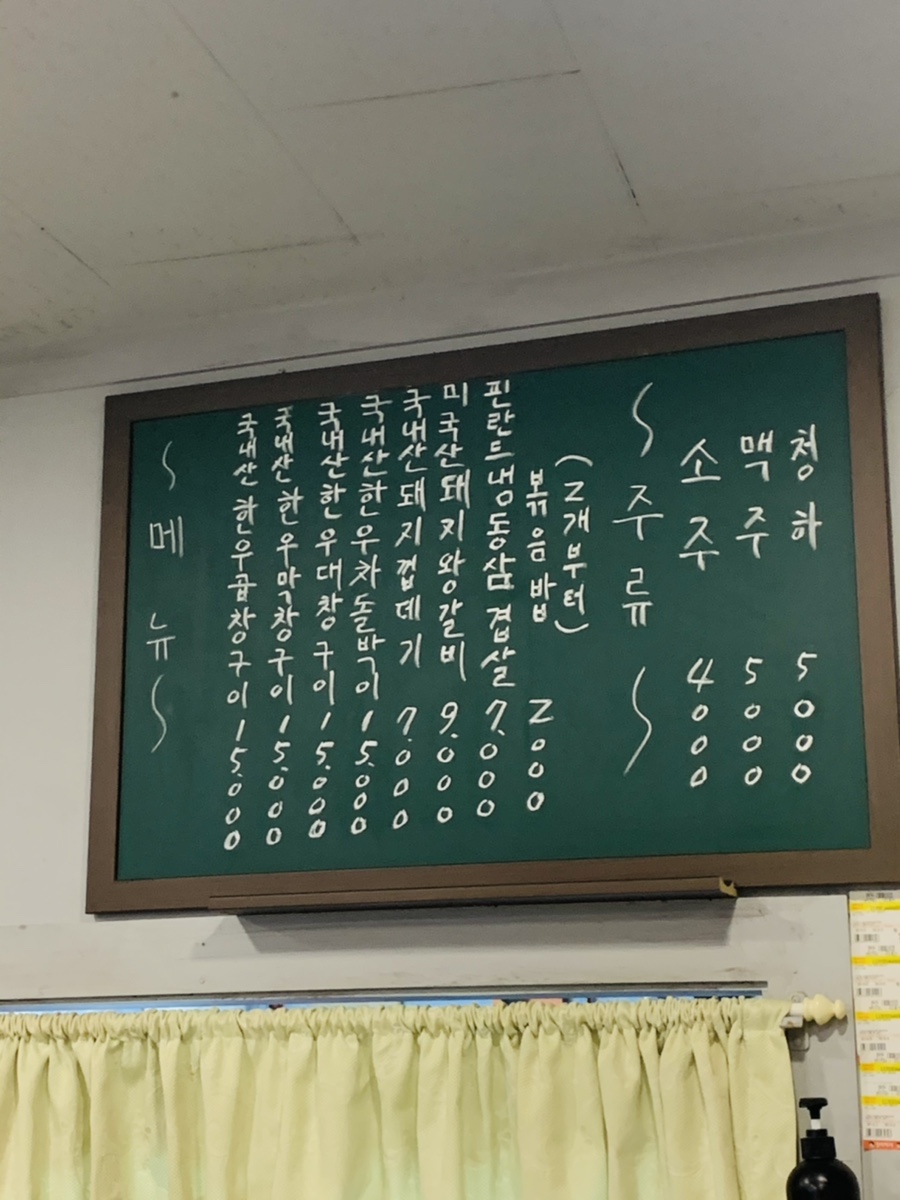 ~메뉴~
국내산 한우곱창구이 15.000
국내산 한우막창구이 15.000
국내산한우대창구이 15.000
국내산한우차돌박이 15.000
국내산돼지껍데기 7.000
미국산돼지왕갈비 9.000
핀란드냉동삼겹살 7.000
볶음밥 2000
(2개부터)
~주류~
소주 4000
맥주 5000
청하 5000